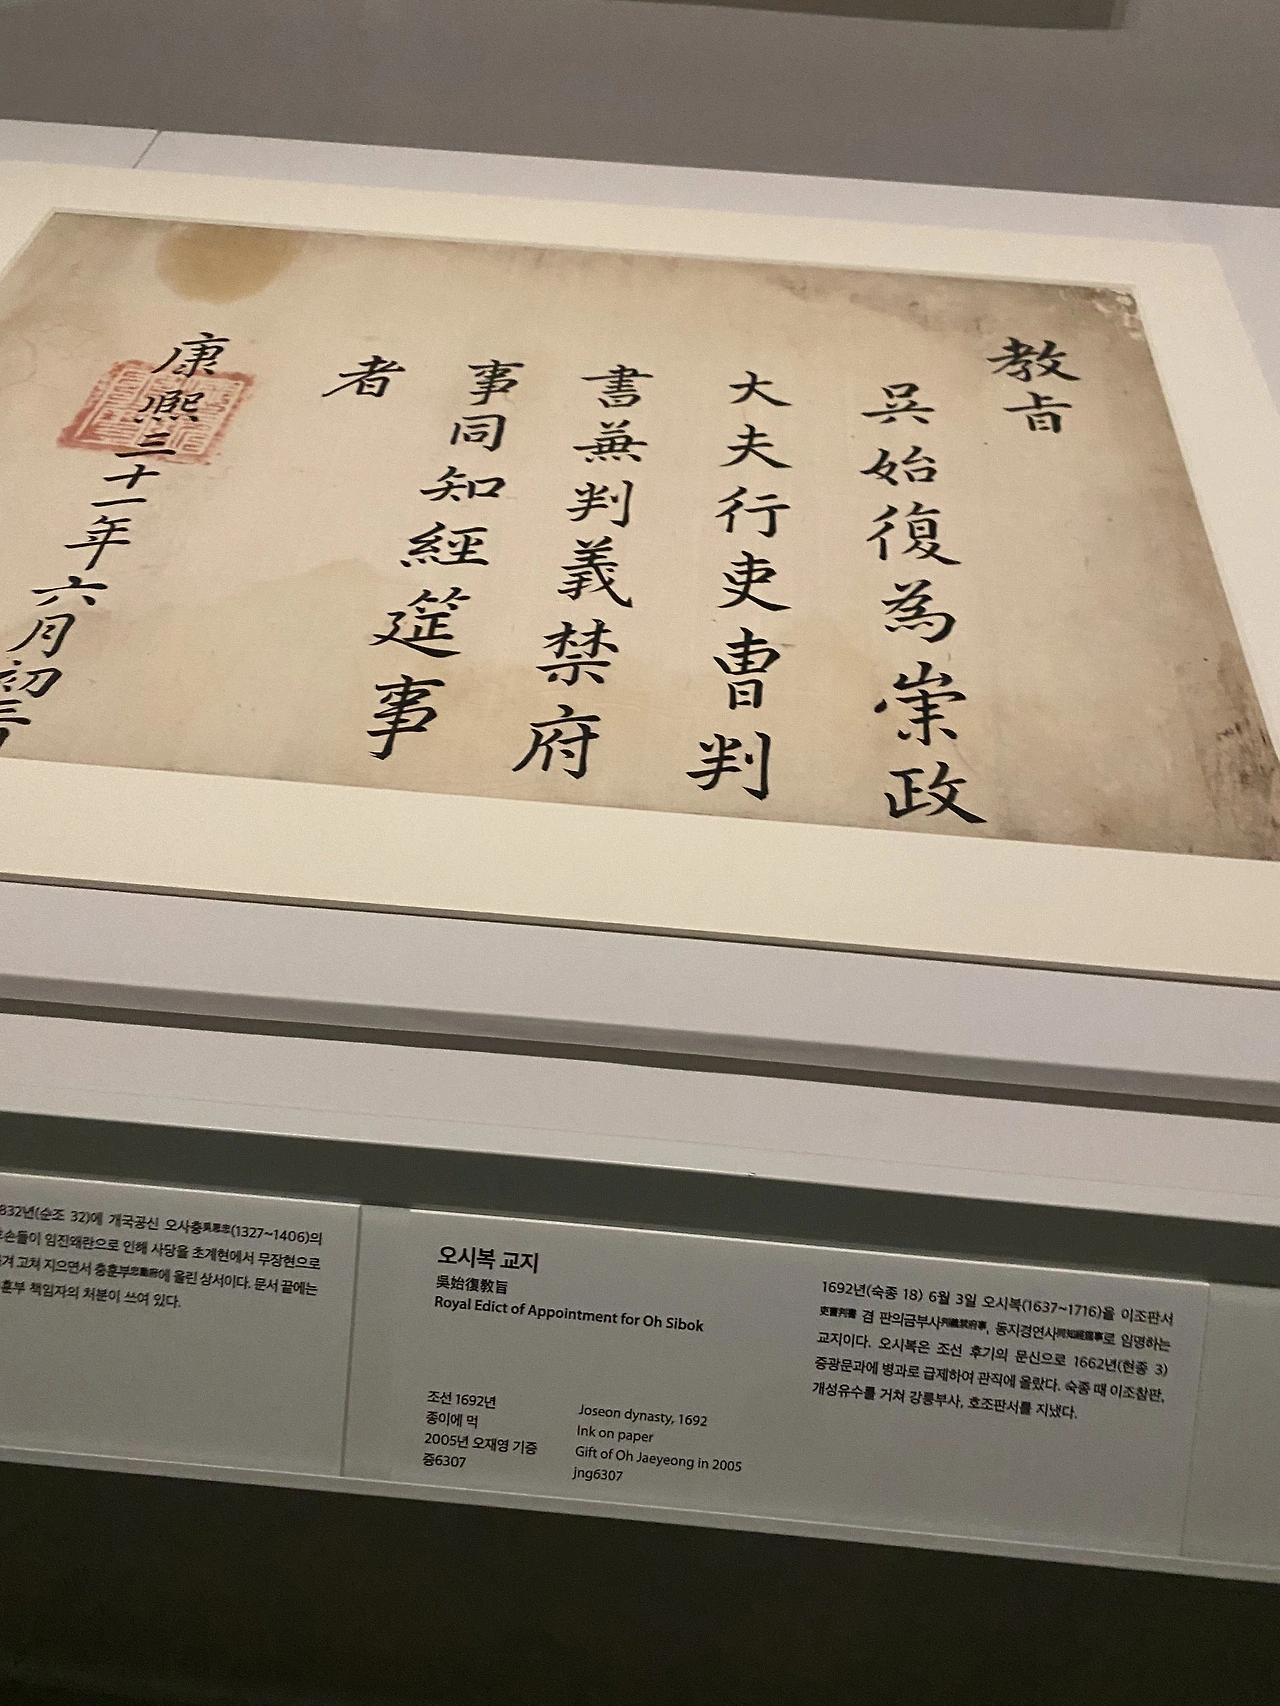 教旨
吳始復為崇政
大夫行吏曹判
書兼判義禁府
事同知經筵事
者
康熙三十一年六月初三
832년(순조 32)에 개국공신 오사충吳思忠(1327~1406)의
손들이 임진왜란으로 인해 사당을 초계현에서 무장현으로
겨 고쳐 지으면서 충훈부忠勳府에 올린 상서이다. 문서 끝에는
훈부 책임자의 처분이 쓰여 있다.
오시복 교지
吳始復敎旨
Royal Edict of Appointment for Oh Sibok
조선 1692년
종이에 먹
2005년 오재영 기증
증6307
Joseon dynasty, 1692
Ink on paper
Gift of Oh Jaeyeong in 2005
jng6307
1692년(숙종 18) 6월 3일 오시복(1637~1716)을 이조판서
吏曹判書 겸 판의금부사判義禁府事, 동지경연사同知經筵事로 임명하는
교지이다. 오시복은 조선 후기의 문신으로 1662년(현종 3)
증광문과에 병과로 급제하여 관직에 올랐다. 숙종 때 이조참판,
개성유수를 거쳐 강릉부사, 호조판서를 지냈다.